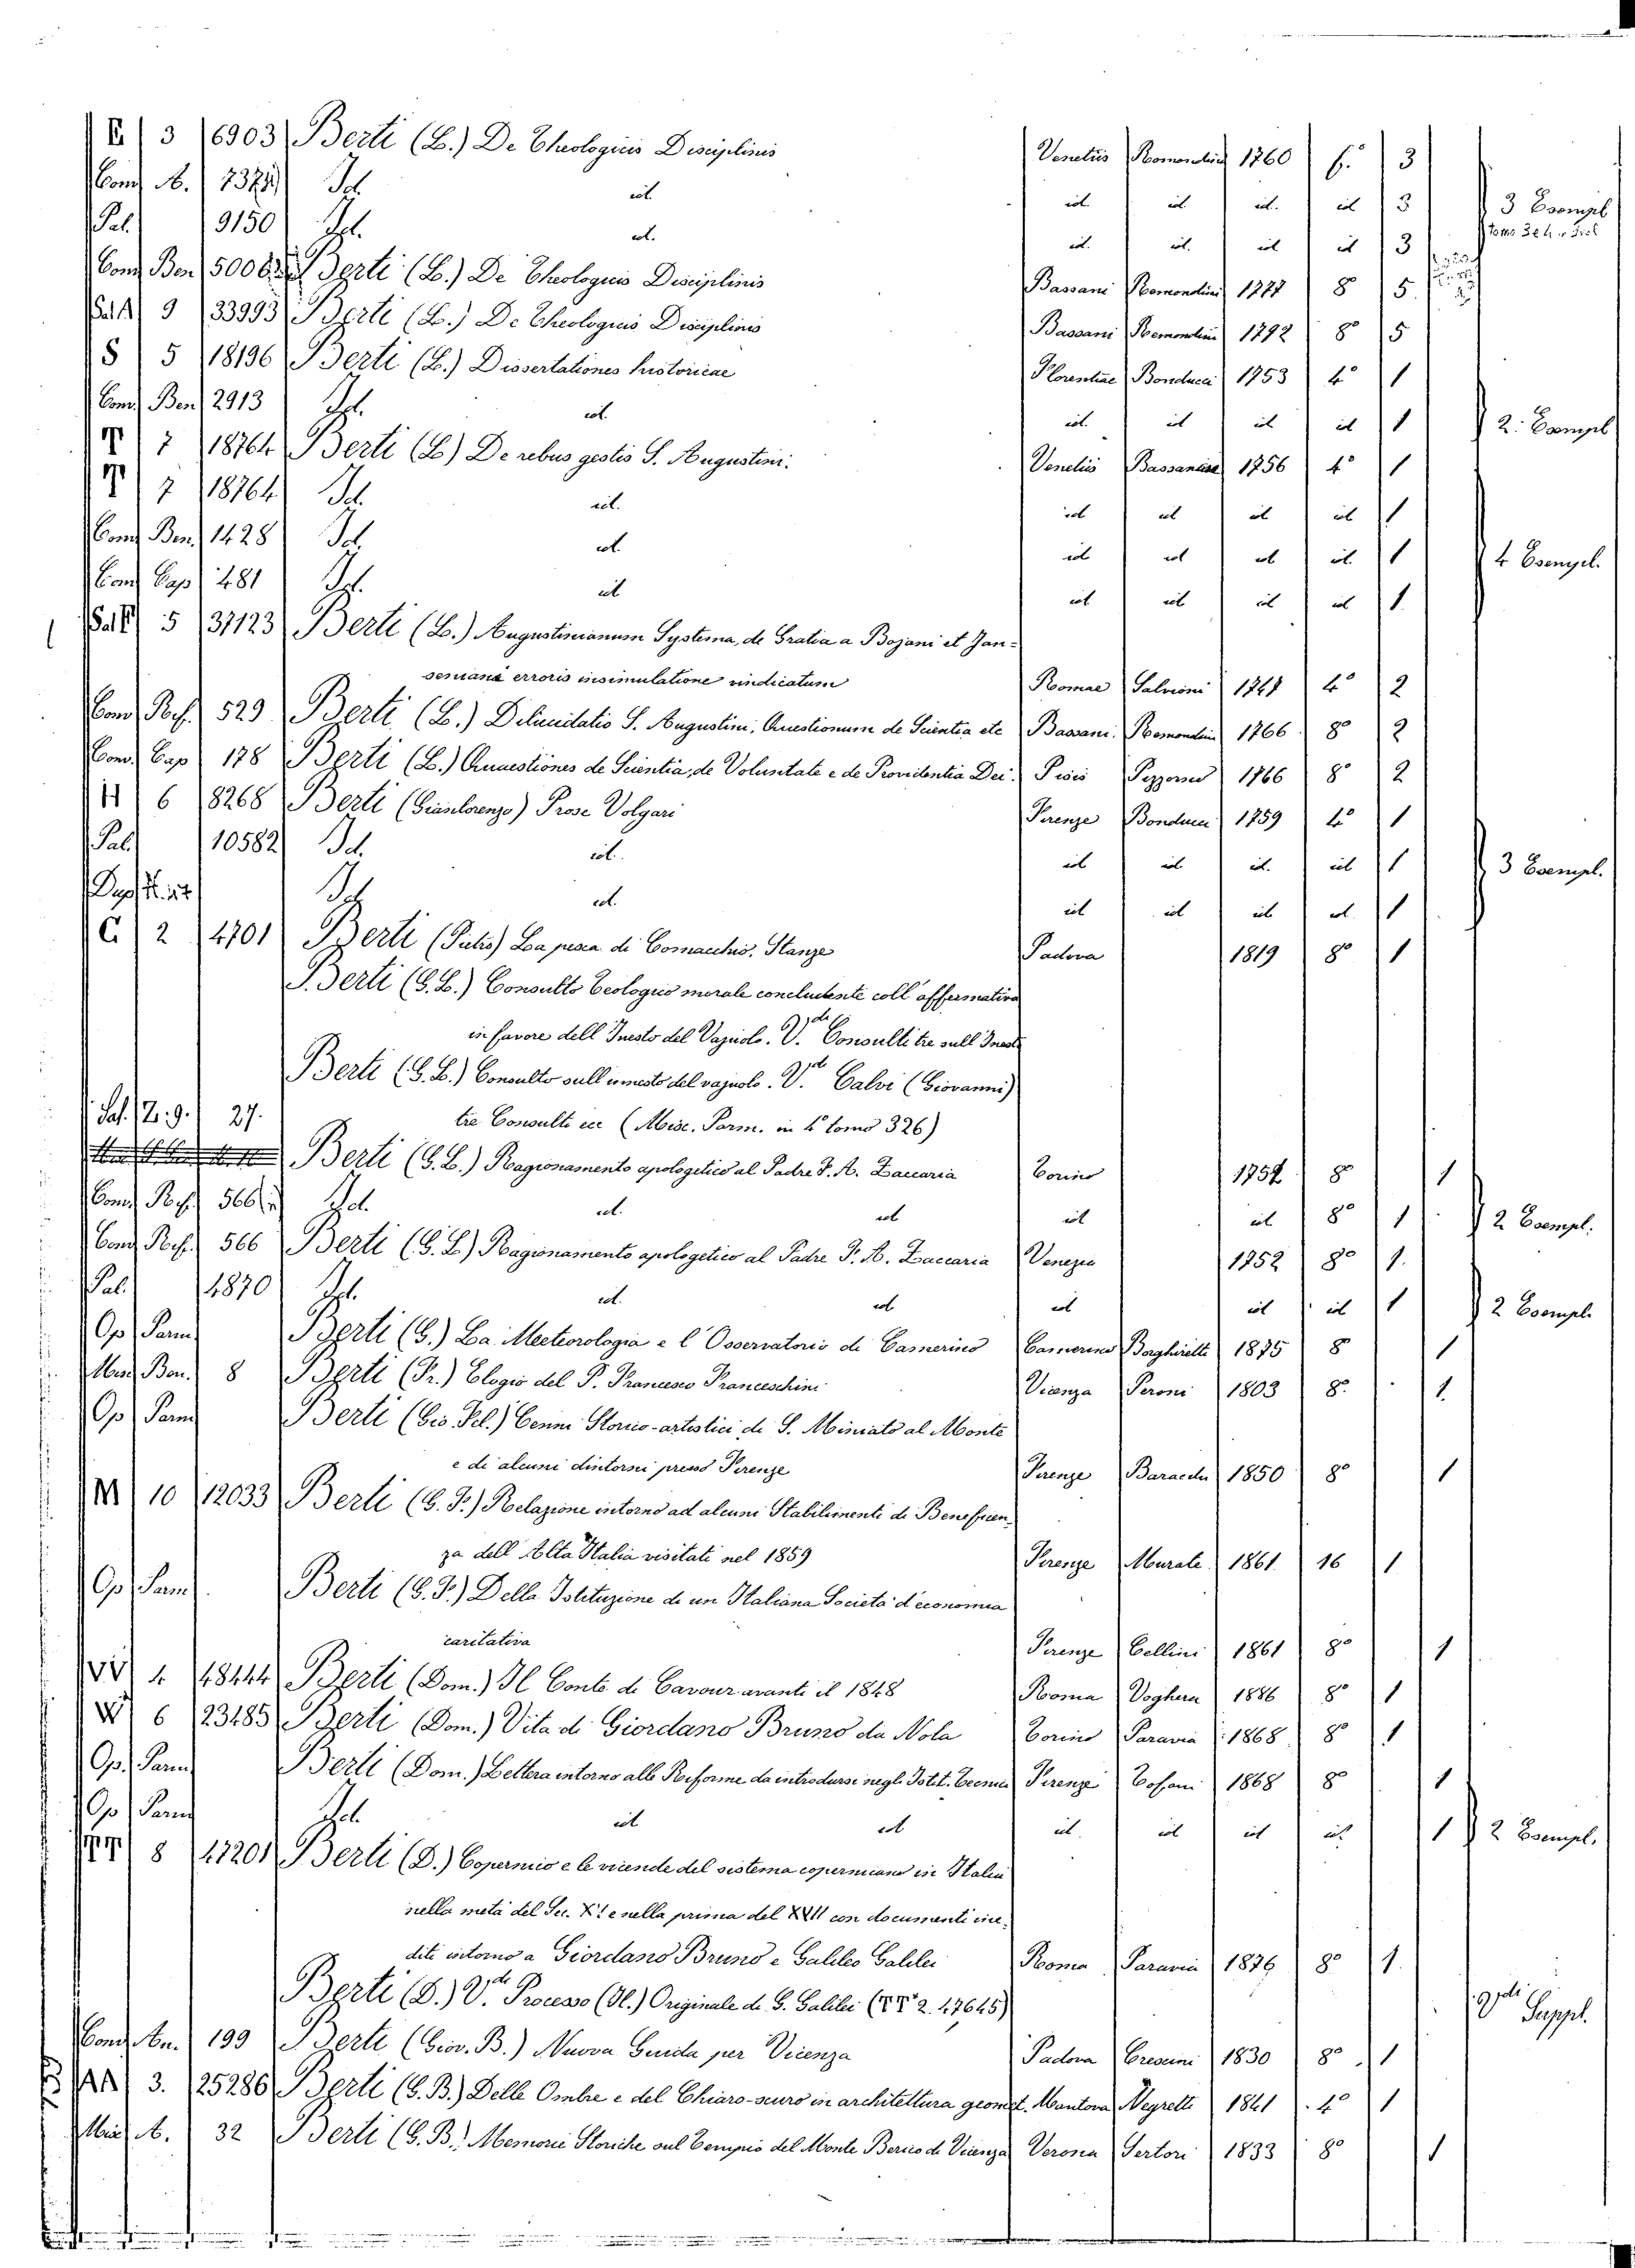 E 3 6903 Berti (L.) De Theologicis Disciplinis Venetiis Remondini 1760 f. 3
Cond A. 7374 Id. id. id. id. id. id 3 3 Esempl
Pal. 9150 Id. id. id. id. id id 3 tomo 3 e 4 in
Cond Ben 5006 Berti (L.) De Theologicis Disciplinis Bassani Remondini 1777 8 5
Sal. A 9 33993 Berti (L.) De Theologicis Disciplinis Bassani Remondini 1792 8º 5
S 5 18196 Berti (L.) Dissertationes historicae Florentiae Bonducci 1753 4º 1
Cond Ben 2913 Id. id. id. id id id 1 2. Esempl
7 18764 Berti (L.) De rebus gestis S. Augustini. Venetiis Bassanese 1756 4º 1
7 18764 Id. id. id id id id 1
Cond Ben. 1428 Id. id. id id id id. 1 4 Esempl.
Cond Cap 481 Id. id id id id id 1.
Sal. 5 37123 Berti (L.) Augustinianum Systema, de Gratia a Bajani et Jan-
seniani erroris insimulatione vindicatum Romae Salvioni 1747 4º 2
Cond Rif. 529 Berti (L.) Dilucidatio S. Augustini, Quaestionum de Scientia etc Bassani. Remondini 1766 8º 2
Cond. Cap 178 Berti (L.) Quaestiones de Scientia, de Voluntate e de Providentia Dei. Pisis Pizzorno 1766 8º 2
H 6 8268 Berti (Gianlorenzo) Prose Volgari Firenze Bonducci 1759 4º 1
Pal. 10582 Id. id. id id. id. id 1 3 Esempl.
Dup. Id id. id id id id. 1
C 2 4701 Berti (Pietro) La pesca di Comacchio, Stanze Padova 1819 8º 1
Berti (G. L.) Consulto teologico morale concludente coll'affermativa
in favore dell'Inesto del Vajuolo. V.de Consulti tre sull'Inesto
Berti (G. L.) Consulto sull'innesto del vajuolo. V.de Calvi (Giovanni)
tre Consulti ecc (Misc. Parm. in 4º tomo 326)
Sal. Z. 9. 27. Berti (G. L.) Ragionamento apologetico al Padre F. A. Zaccaria Torino 1751 8º 1
Cond Rif. 566 Id. id. id id id 8º 1 2 Esempl.
Cond Rif. 566 Berti (G. L.) Ragionamento apologetico al Padre F. A. Zaccaria Venezia 1752 8º 1.
Pal. 14870 Id. id. id id id id 1 2 Esempl.
Op. Parm Berti (G.) La Meteorologia e l'Osservatorio di Camerino Camerino Borgharelli 1875 8º 1
Misc Ben. 8 Berti (Fr.) Elogio del P. Francesco Franceschini Vicenza Peroni 1803 8º. 1.
Op. Parm Berti (Gio. Fel.) Cenni Storico-artistici di S. Miniato al Monte
e di alcuni dintorni presso Firenze Firenze Baracchi 1850 8º 1
M 10 12033 Berti (G. F.) Relazione intorno ad alcuni Stabilimenti di Beneficen-
za dell'Alta Italia visitati nel 1859 Firenze Murate 1861. 16 1
Op. Parm. Berti (G. F.) Della Istituzione di un Italiana Società d'economia
caritativa Firenze Cellini 1861 8º 1
VV 4 48444 Berti (Dom.) Il Conte di Cavour avanti il 1848 Roma Voghera 1886 8º 1
W 6 23485 Berti (Dom.) Vita di Giordano Bruno da Nola Torino Paravia 1868 8º 1
Op. Parm Berti (Dom.) Lettera intorno alle Riforme da introdursi negli Istit. Tecnici Firenze Tofani 1868 8º 1
Op. Parm Id. id id id. id id id. 1 2 Esempl.
8 47201 Berti (D.) Copernico e le vicende del sistema copernicano in Italia
nella metà del Sec. XVI e nella prima del XVII con documenti ine-
diti intorno a Giordano Bruno e Galileo Galilei Roma Paravia 1876 8º 1.
Berti (D.) V.de Processo (Il.) Originale di G. Galilei (2. 47645) Suppl.
Cond. An. 199 Berti (Giov. B.) Nuova Guida per Vicenza Padova Crescini 1830 8º 1
3. 25286 Berti (G. B.) Delle Ombre e del Chiaro-scuro in architettura geomet. Mantova Negretti 1841 4º 1
Misc A. 32 Berti (G. B.) Memorie Storiche sul Tempio del Monte Berico di Vicenza Verona Sertori 1833 8º 1